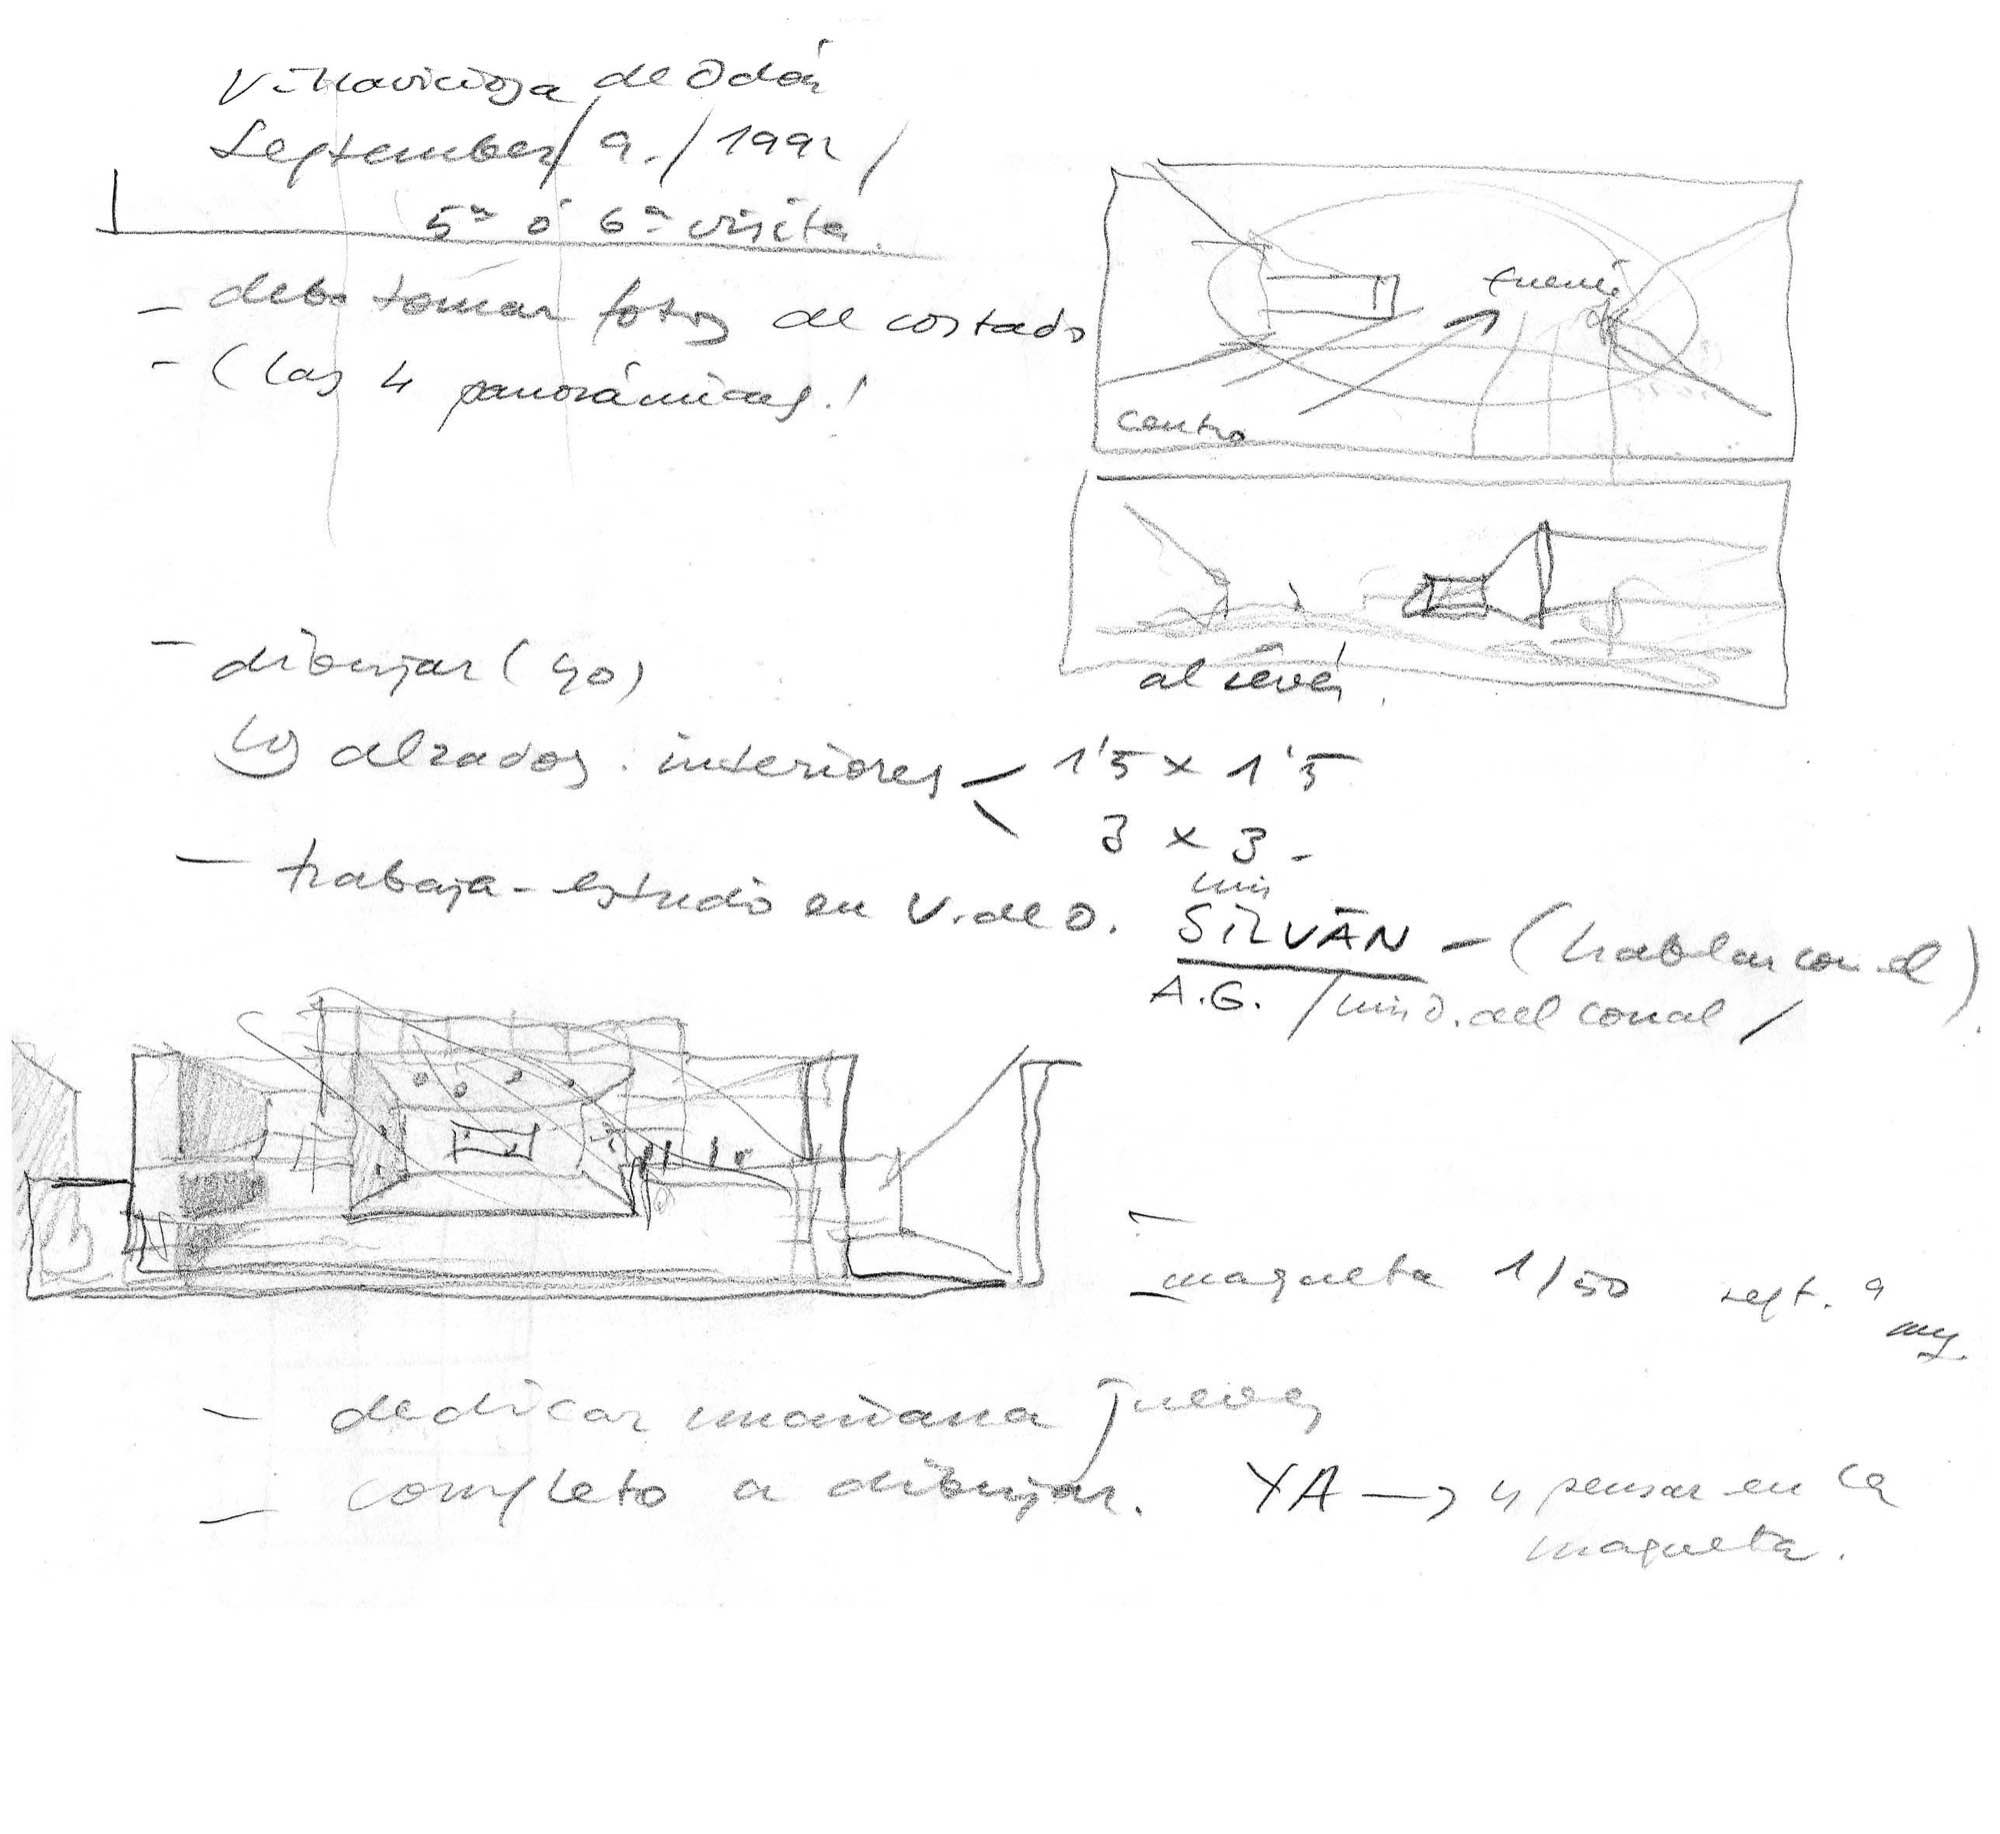 Villaviciosa de Odón
September / 9. / 1992 /
5ª ó 6ª visita.
- debo tomar fotos de costado
- (las 4 panorámicas!
centro
al revés.
- dibujar (yo)
los alzados. interiores < 1'5 x 1'5
3 x 3 -
- trabajo - estudio en V. de O.
SILVÁN - (hablar con el)
A.G. / del /
- maqueta 1/50 sept. 9
- dedicar mañana jueves
- completo a dibujar. YA → y pensar en la
maqueta.